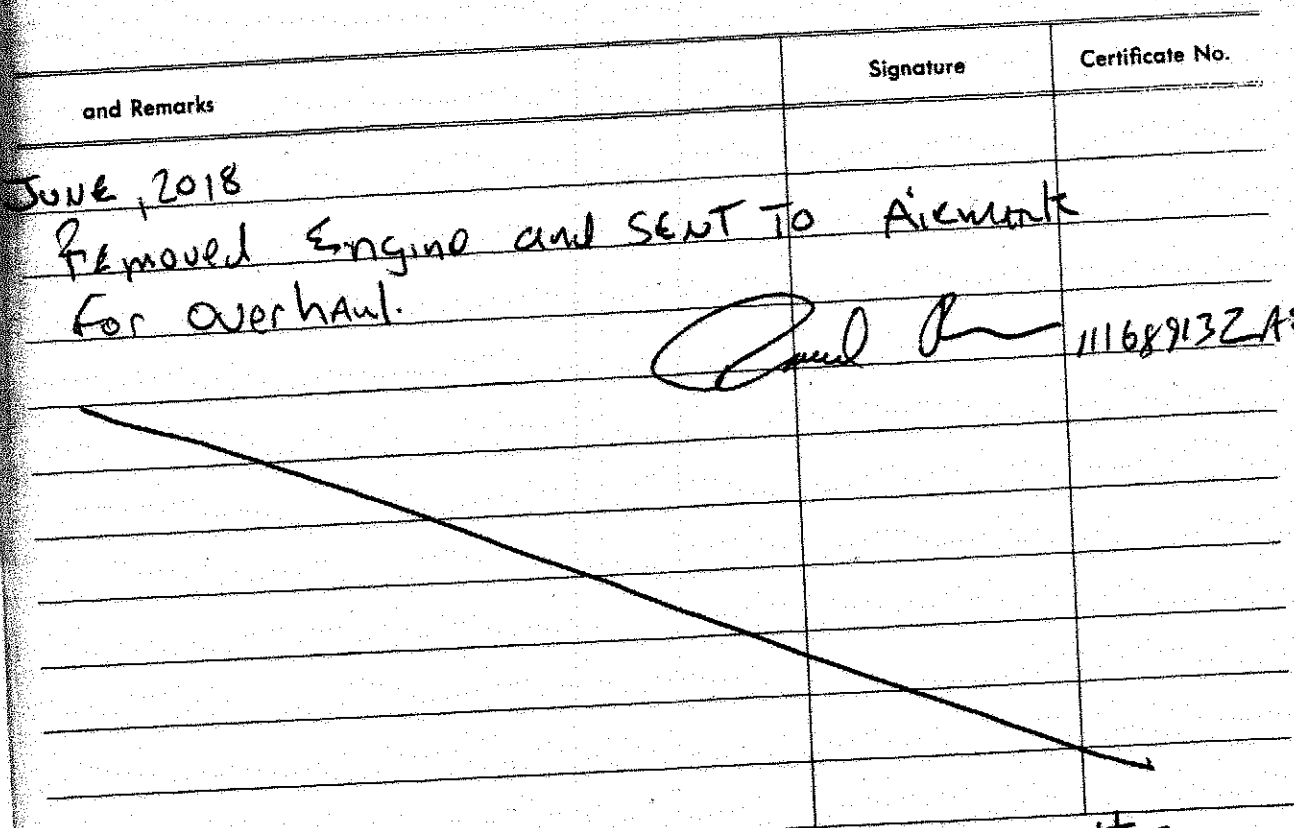 and Remarks
Signature
Certificate No.
JUNE, 2018
REmoved Engine and SENT TO Airmark
For OverhAul.
111689132 A